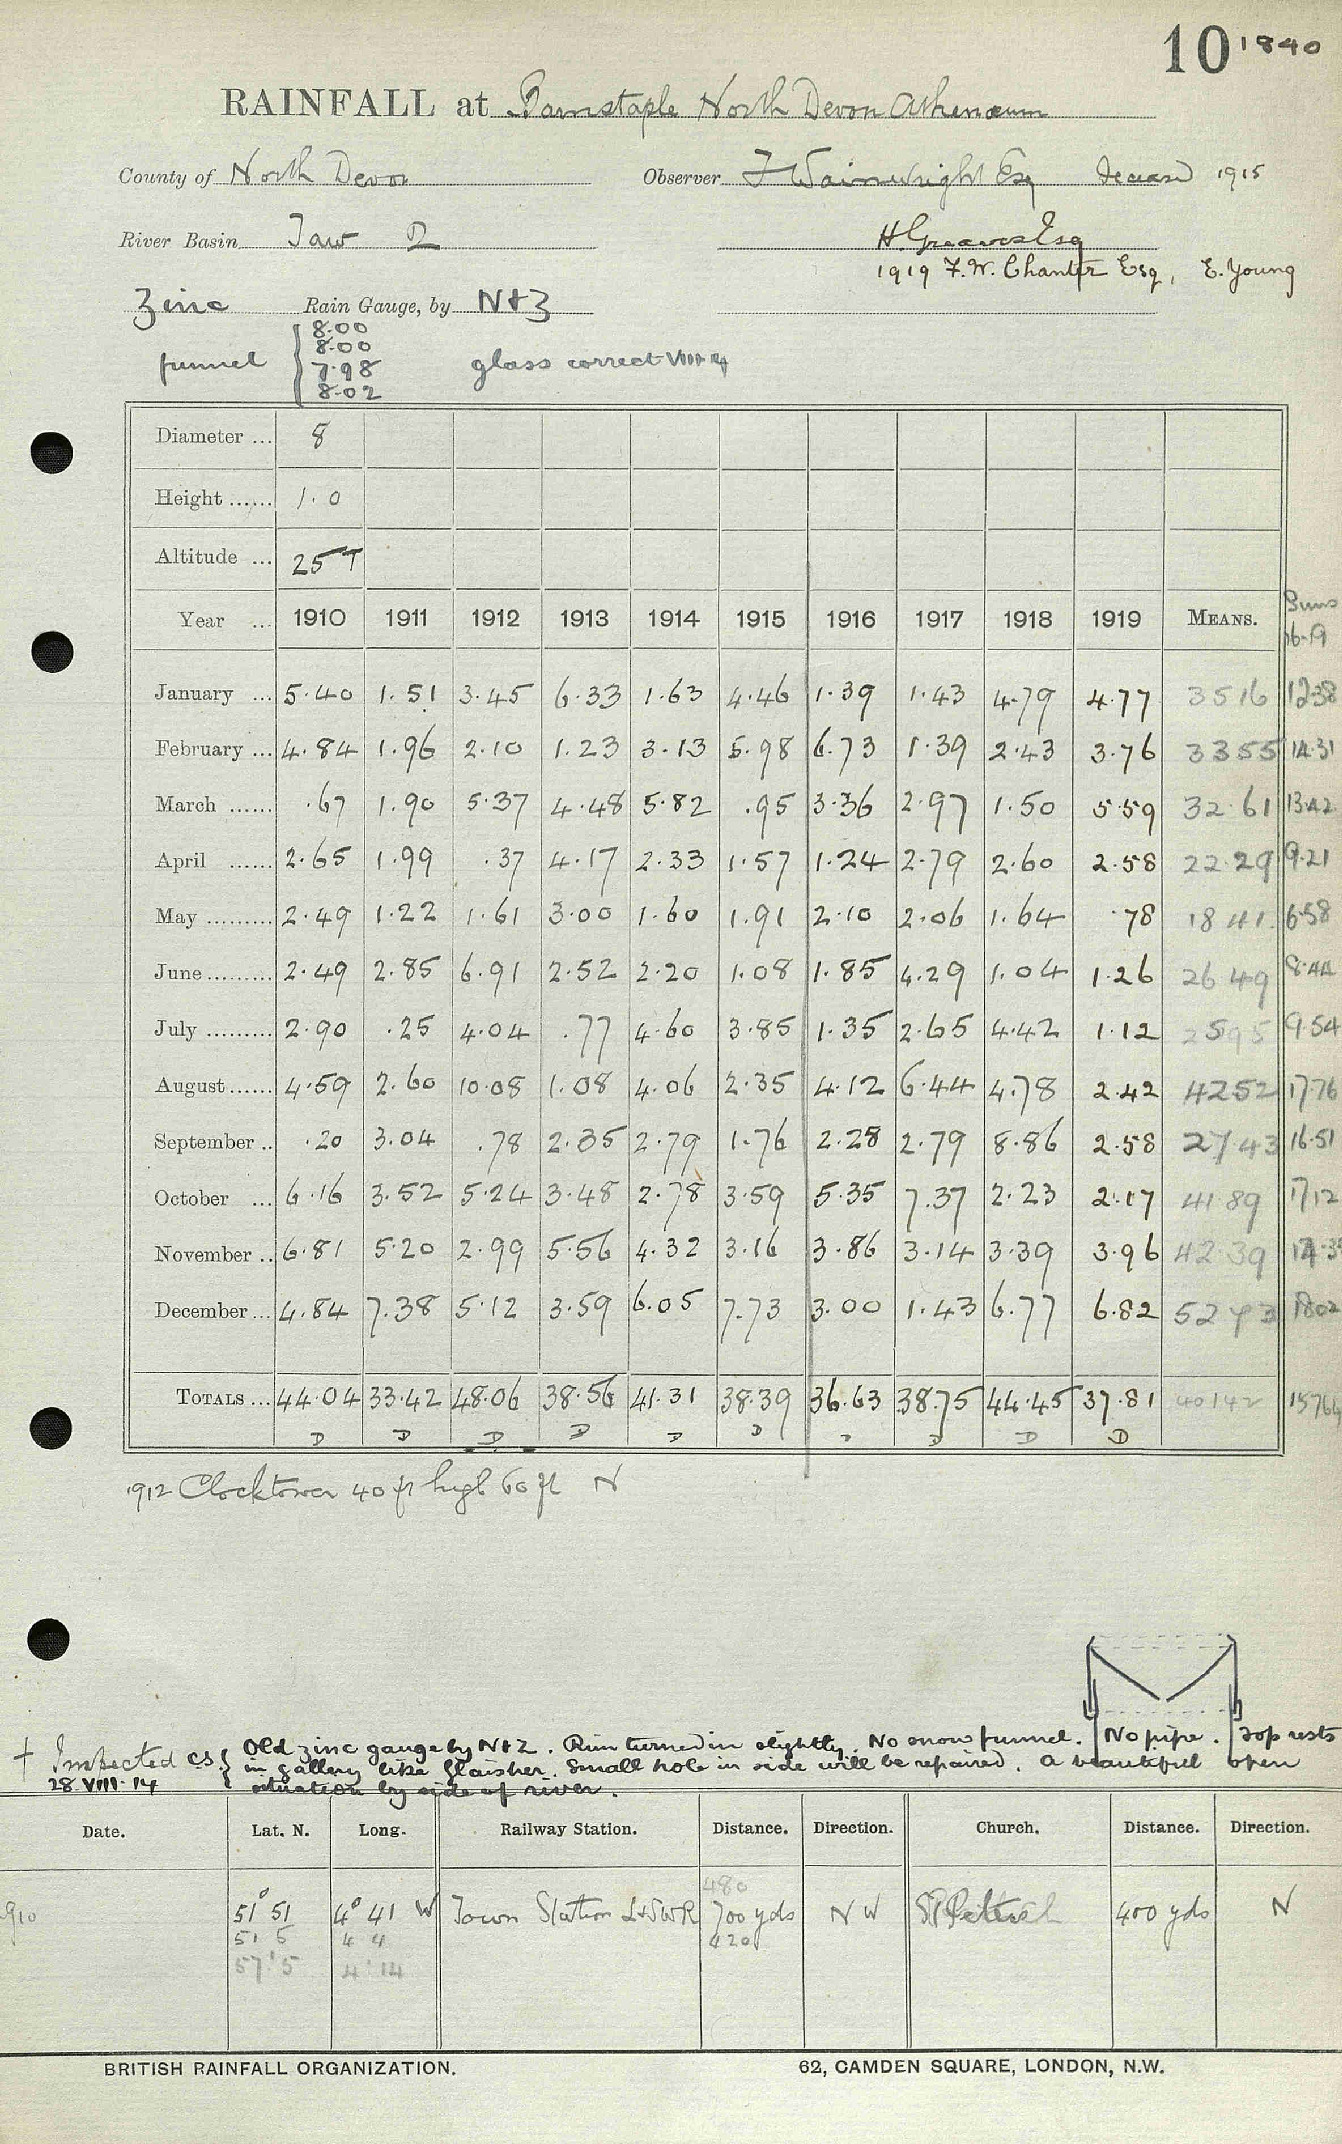 10 1840
RAINFALL at Barnstaple North Devon Athenæum
County of North Devon Observer F Wainwright Esq deceased 1915
River Basin Taw 2 H. Greaves Esq
1919 F. W. Chanter Esq, E. Young
Zinc Rain Gauge, by N+Z
funnel 8.00 8.00 7.98 8.02 glass correct VIII 14
Diameter ... 8
Height ...... 1.0
Altitude ... 25 T
Year ... 1910 1911 1912 1913 1914 1915 1916 1917 1918 1919 MEANS. Sums 16-19
January ... 5.40 1.51 3.45 6.33 1.63 4.46 1.39 1.43 4.79 4.77 3516 12.38
February ... 4.84 1.96 2.10 1.23 3.13 5.98 6.73 1.39 2.43 3.76 3355 14.31
March ...... .67 1.90 5.37 4.48 5.82 .95 3.36 2.97 1.50 5.59 32 61 13.42
April ...... 2.65 1.99 .37 4.17 2.33 1.57 1.24 2.79 2.60 2.58 22 29 9.21
May ......... 2.49 1.22 1.61 3.00 1.60 1.91 2.10 2.06 1.64 .78 18 41 6.58
June ......... 2.49 2.85 6.91 2.52 2.20 1.08 1.85 4.29 1.04 1.26 26 49 8.44
July ......... 2.90 .25 4.04 .77 4.60 3.85 1.35 2.65 4.42 1.12 2595 9.54
August ...... 4.59 2.60 10.08 1.08 4.06 2.35 4.12 6.44 4.78 2.42 4252 17.76
September .. .20 3.04 .78 2.35 2.79 1.76 2.28 2.79 8.86 2.58 27 43 16.51
October ... 6.16 3.52 5.24 3.48 2.78 3.59 5.35 7.37 2.23 2.17 41 89 17.12
November .. 6.81 5.20 2.99 5.56 4.32 3.16 3.86 3.14 3.39 3.96 42.39 14.35
December ... 4.84 7.38 5.12 3.59 6.05 7.73 3.00 1.43 6.77 6.82 52 73 18.02
TOTALS ... 44.04 33.42 48.06 38.56 41.31 38.39 36.63 38.75 44.45 37.81 40142 15764
D D D D D D D D D D
1912 Clocktower 40 ft high 60 ft N
† Inspected CS 28.VIII.14
Old zinc gauge by N+Z. Rim turned in slightly. No snow funnel. No pipe. Top rests
in gallery like Glaisher. Small hole in side will be repaired. A beautiful open
situation by side of river.
Date. Lat. N. Long. Railway Station. Distance. Direction. Church. Distance. Direction.
480
910 51° 51 4° 41 W Town Station L+SWR 700 yds NW St Peters 400 yds N
51 5 4 4 420
57.5 4.14
BRITISH RAINFALL ORGANIZATION. 62, CAMDEN SQUARE, LONDON, N.W.